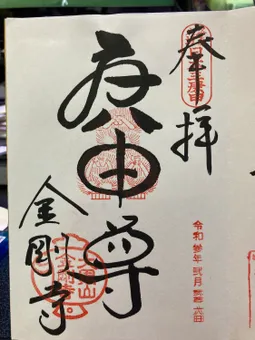 奉拝
令和 参年 弐月
庚申尊
金剛寺